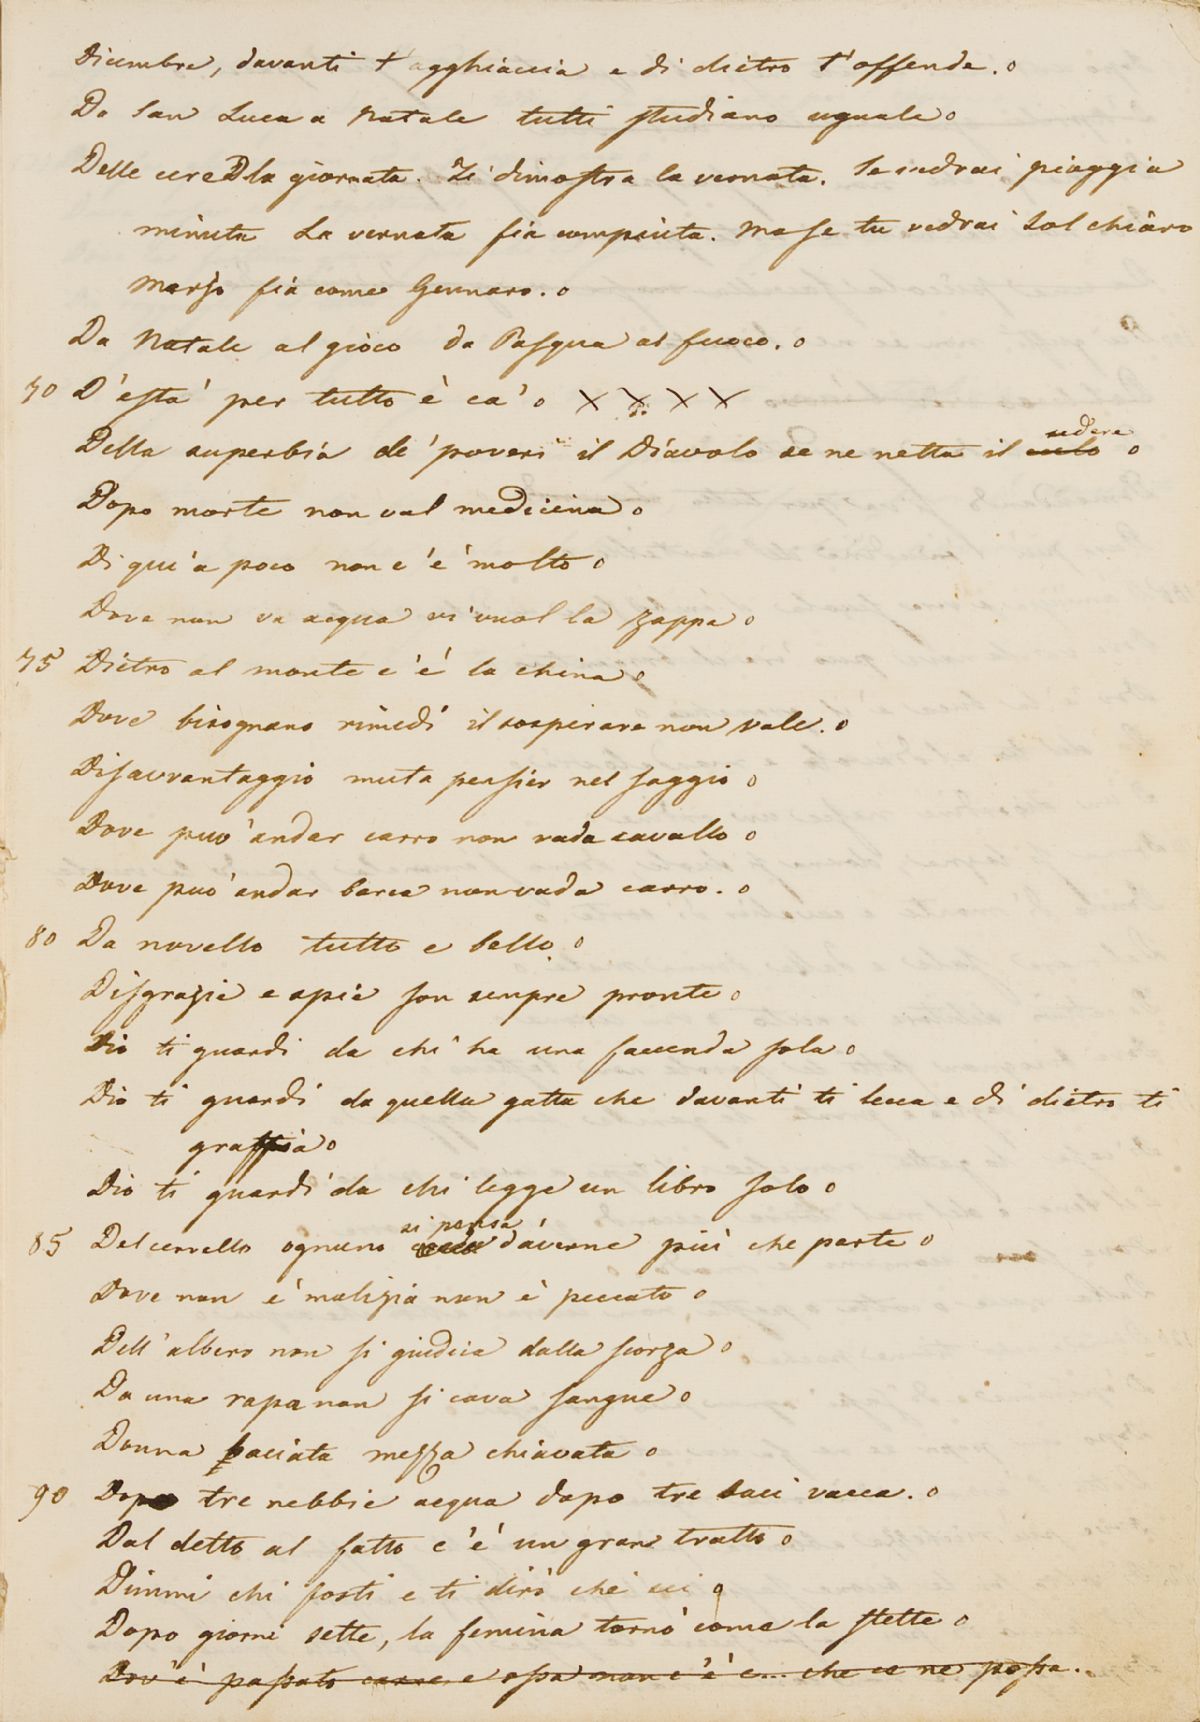 Dicembre, davanti t'agghiaccia e di dietro t'offende. o
Da San Luca a Natale tutti studiano uguale o
Delle cere Dla giornata. Ti dimostra la vernata. Se vedrai pioggia
minuta La vernata fia compiuta. Ma se tu vedrai Sol chiaro
Marzo fia come Gennaro. o
Da Natale al gioco da Pasqua al fuoco. o
70 D'està per tutto è ca' o X X X X
Della superbia de' poveri il Diavolo se ne netta il culo sedere o
Dopo morte non val medicina o
Di qui a poco non c'è molto o
Dove non va acqua vi vuol la zappa o
75 Dietro al monte c'è la china o
Dove bisognano rimedi il sospirare non vale. o
Disavvantaggio muta pensier nel saggio o
Dove può andar carro non vada cavallo o
Dove può andar barca non vada carro. o
80 Da novello tutto e bello. o
Disgrazie e spie son sempre pronte o
Dio ti guardi da chi ha una faccenda sola o
Dio ti guardi da quella gatta che davanti ti lecca e di dietro ti
graffia o
Dio ti guardi da chi legge un libro solo o
si pensa
85 Del cervello ognuno d'averne più che parte o
Dove non è malizia non è peccato o
Dell'albero non si giudica dalla scorza o
Da una rapa non si cava sangue o
Donna baciata mezza chiavata o
90 Dopo tre nebbie acqua dopo tre baci vacca. o
Dal detto al fatto c'è un gran tratto o
Dimmi chi fosti e ti dirò chi sei o
Dopo giorni sette, la femina tornò come la stette o
Dov'è passato carne e ossa non c'è c... che ce ne possa.